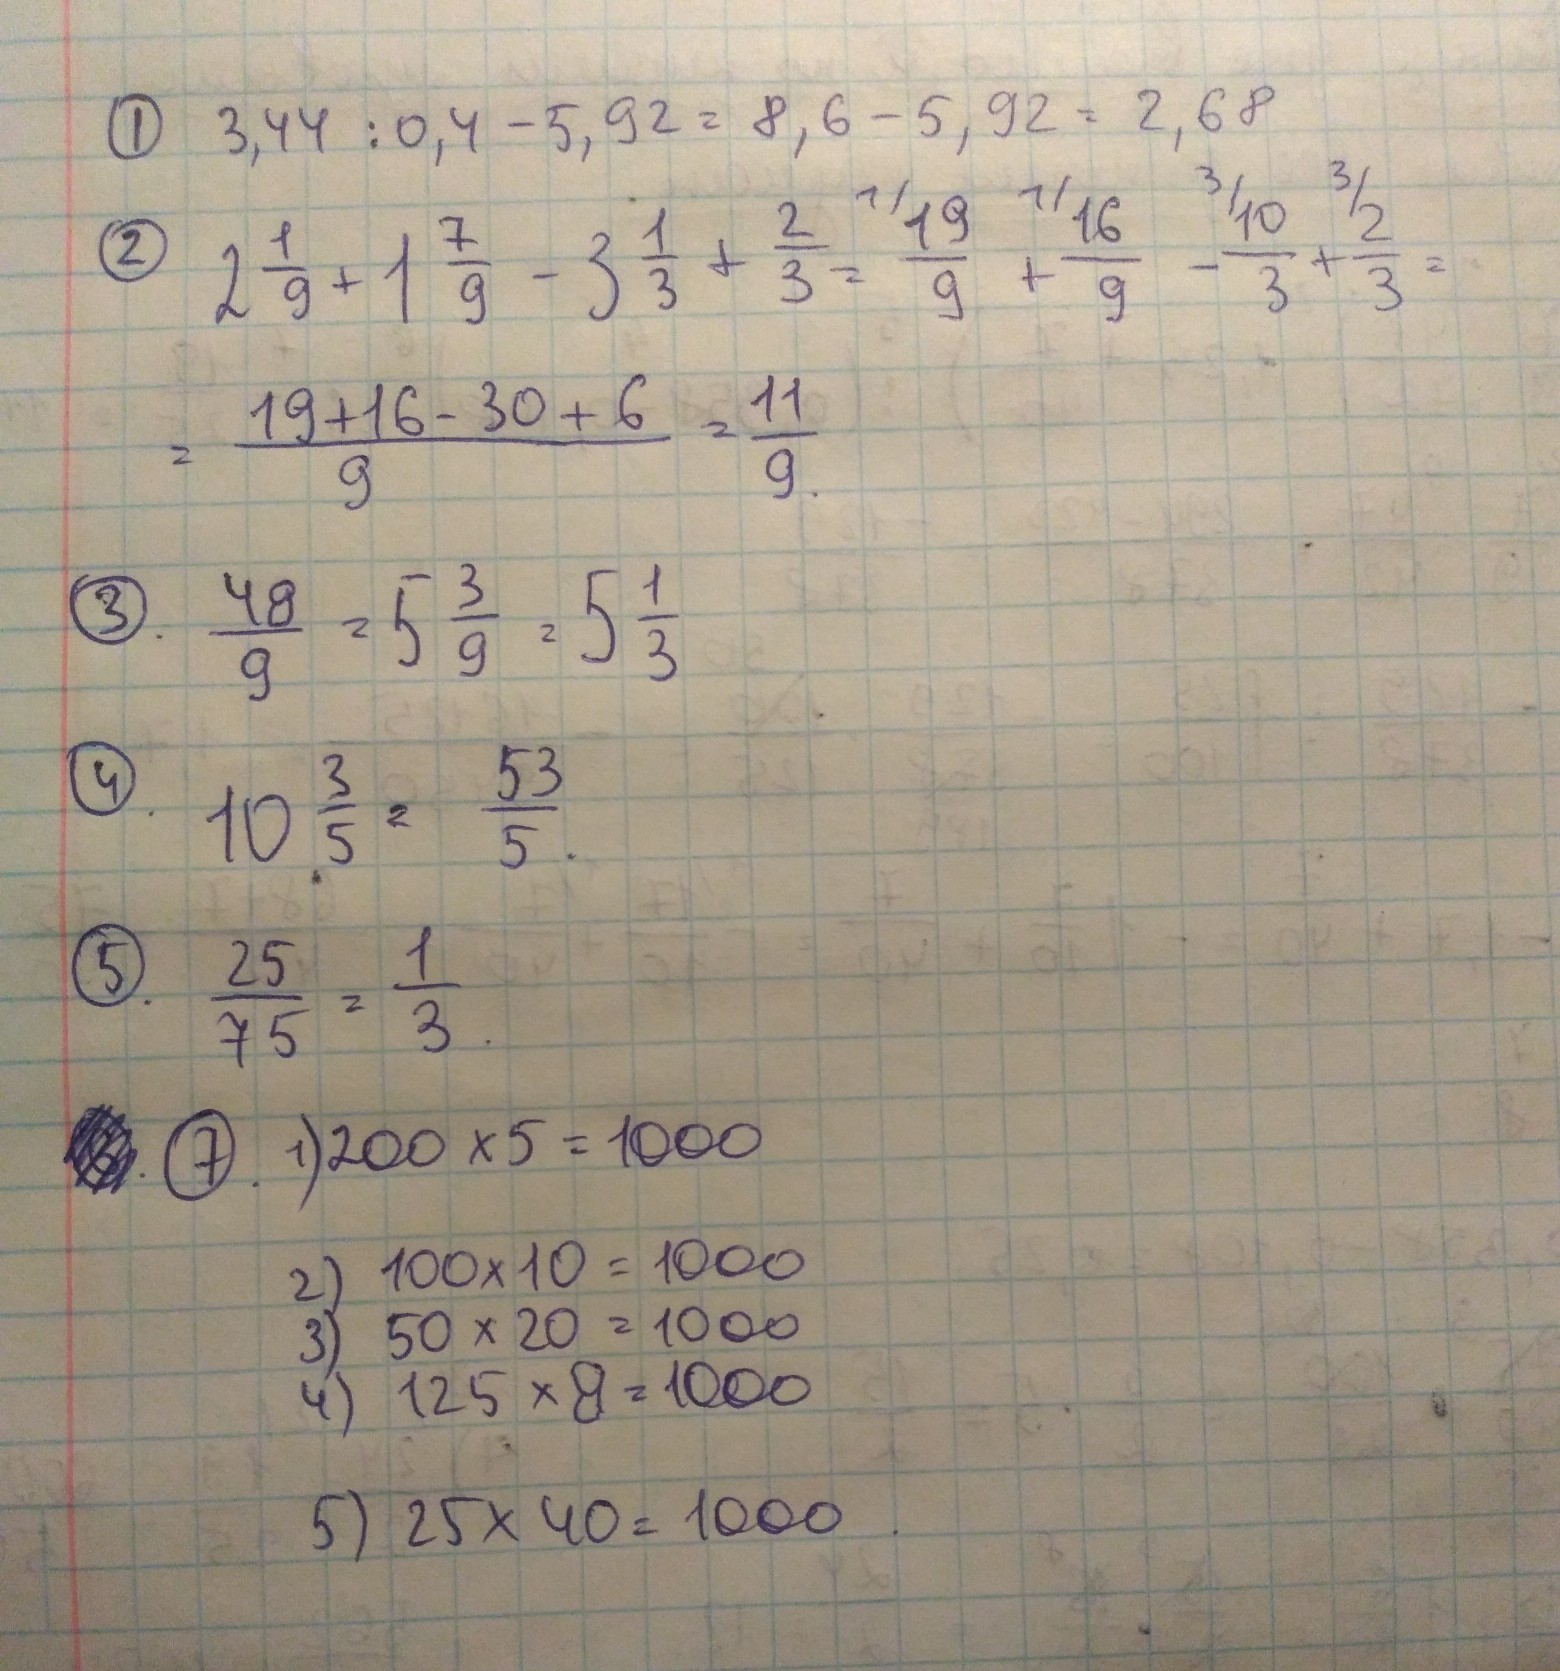 ① 3,44 : 0,4 - 5,92 = 8,6 - 5,92 = 2,68
② 2 1/9 + 1 7/9 - 3 1/3 + 2/3 = 1/ 19/9 + 1/ 16/9 - 3/ 10/3 + 3/ 2/3 =
= (19+16-30+6)/9 = 11/9.
③. 48/9 = 5 3/9 = 5 1/3
④. 10 3/5 = 53/5.
⑤. 25/75 = 1/3.
⑦. 1) 200 x 5 = 1000
2) 100 x 10 = 1000
3) 50 x 20 = 1000
4) 125 x 8 = 1000
5) 25 x 40 = 1000.